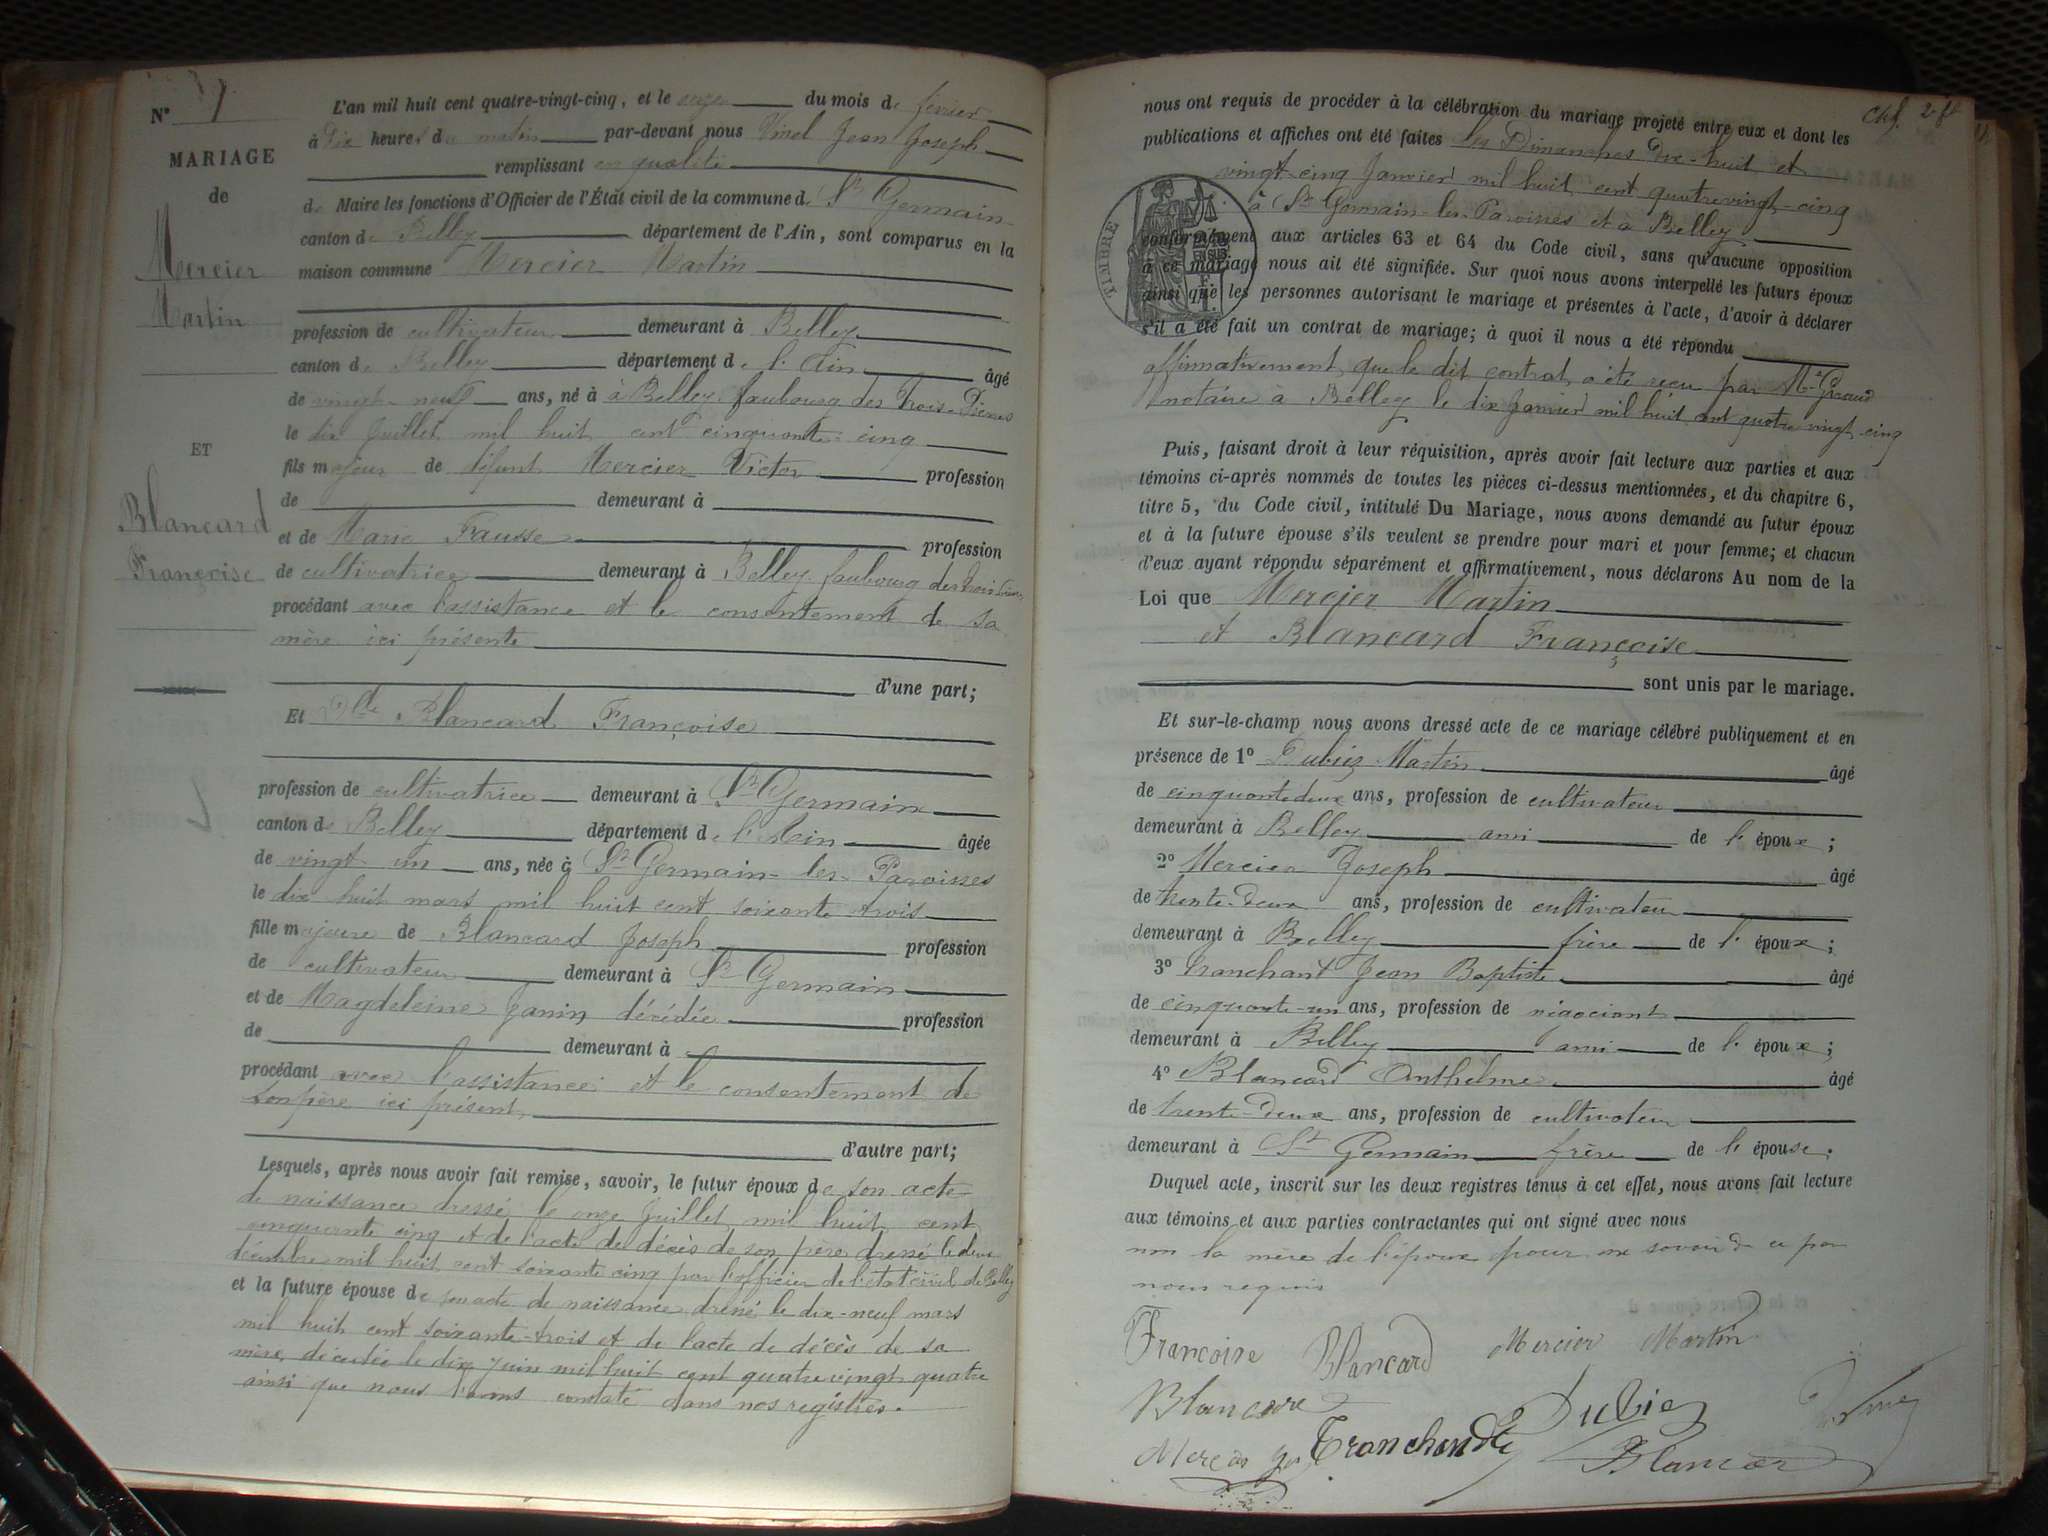 N° 7
MARIAGE
de
Mercier
Martin
ET
Blancard
Françoise
L'an mil huit cent quatre-vingt-cinq, et le onze du mois de février
à Dix heures du matin par-devant nous Jean Joseph
remplissant en qualité
de Maire les fonctions d'Officier de l'État civil de la commune de St Germain
canton de Belley département de l'Ain, sont comparus en la
maison commune Mercier Martin
profession de cultivateur demeurant à Belley
canton de Belley département de l'Ain âgé
de vingt-neuf ans, né à à Belley faubourg des Trois
le dix Juillet mil huit cent cinquante-cinq
fils majeur de défunt Mercier Victor profession
de demeurant à
et de Marie Fausse profession
de cultivatrice demeurant à Belley faubourg des trois
procédant avec l'assistance et le consentement de sa
mère ici présente
d'une part;
Et Dlle Blancard Françoise
profession de cultivatrice demeurant à St Germain
canton de Belley département de l'Ain âgée
de vingt un ans, née à St Germain-les-Paroisses
le dix huit mars mil huit cent soixante trois
fille majeure de Blancard Joseph profession
de cultivateur demeurant à St Germain
et de Magdeleine Janin décédée profession
de demeurant à
procédant avec l'assistance et le consentement de
son père ici présent
d'autre part;
Lesquels, après nous avoir fait remise, savoir, le futur époux de son acte
de naissance dressé le onze Juillet mil huit cent
cinquante cinq et de l'acte de décès de son père dressé le deux
décembre mil huit cent soixante cinq par l'officier de l'état civil de Belley
et la future épouse de son acte de naissance dressé le dix-neuf mars
mil huit cent soixante-trois et de l'acte de décès de sa
mère décédée le dix juin mil huit cent quatre vingt quatre
ainsi que nous l'avons constaté dans nos registres.
nous ont requis de procéder à la célébration du mariage projeté entre eux et dont les
publications et affiches ont été faites les Dimanches Dix-huit et
vingt-cinq Janvier mil huit cent quatre vingt-cinq
à St Germain-les-Paroisses et à Belley
TIMBRE
conformément aux articles 63 et 64 du Code civil, sans qu'aucune opposition
à ce mariage nous ait été signifiée. Sur quoi nous avons interpellé les futurs époux
ainsi que les personnes autorisant le mariage et présentes à l'acte, d'avoir à déclarer
s'il a été fait un contrat de mariage; à quoi il nous a été répondu
affirmativement que le dit contrat a été reçu par Me
notaire à Belley le dix Janvier mil huit cent quatre vingt-cinq
Puis, faisant droit à leur réquisition, après avoir fait lecture aux parties et aux
témoins ci-après nommés de toutes les pièces ci-dessus mentionnées, et du chapitre 6,
titre 5, du Code civil, intitulé Du Mariage, nous avons demandé au futur époux
et à la future épouse s'ils veulent se prendre pour mari et pour femme; et chacun
d'eux ayant répondu séparément et affirmativement, nous déclarons Au nom de la
Loi que Mercier Martin
et Blancard Françoise
sont unis par le mariage.
Et sur-le-champ nous avons dressé acte de ce mariage célébré publiquement et en
présence de 1° Dubiez Martin âgé
de cinquante deux ans, profession de cultivateur
demeurant à Belley ami de l'époux;
2° Mercier Joseph âgé
de trente-deux ans, profession de cultivateur
demeurant à Belley frère de l'époux;
3° Tranchant Jean Baptiste âgé
de cinquante-un ans, profession de négociant
demeurant à Belley ami de l'époux;
4° Blancard Anthelme âgé
de trente-deux ans, profession de cultivateur
demeurant à St Germain frère de l'épouse.
Duquel acte, inscrit sur les deux registres tenus à cet effet, nous avons fait lecture
aux témoins et aux parties contractantes qui ont signé avec nous
non la mère de l'époux pour ne savoir de ce par
nous requis
Françoise Blancard Mercier Martin
Blancard Dubiez
Tranchant
Blancard